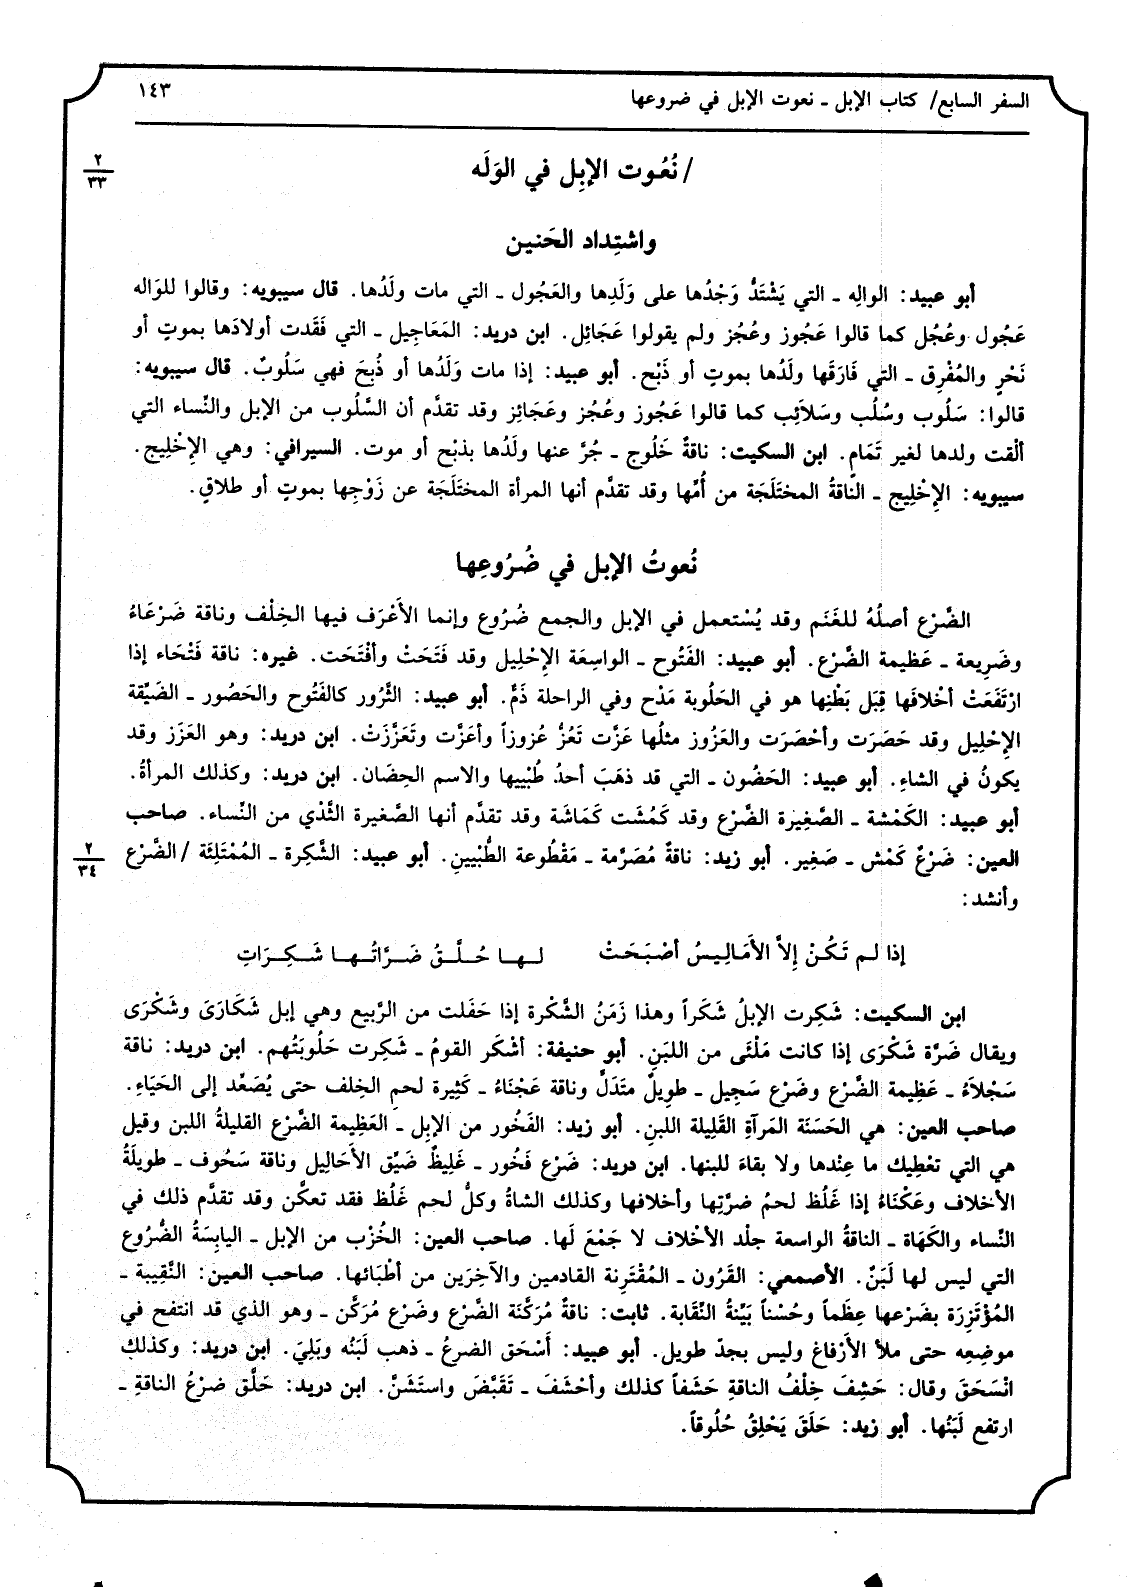 السفر السابع/ كتاب الإبل ـ نعوت الإبل في ضروعها
١٤٣
/ نُعُوت الإبِل في الوَلَه
٢
٣٣
واشتِداد الحَنين
أبو عبيد: الوالِه ـ التي يَشْتَدُّ وَجْدُها على وَلَدِها والعَجُول ـ التي مات ولَدُها. قال سيبويه: وقالوا للوَاله
عَجُول وعُجُل كما قالوا عَجُوز وعُجُز ولم يقولوا عَجَائِل. ابن دريد: المَعَاجِيل ـ التي فَقَدت أولادَها بموتٍ أو
نَحْرٍ والمُفْرِق ـ التِي فَارَقَها ولَدُها بموتٍ أو ذَبْح. أبو عبيد: إذا مات وَلَدُها أو ذُبِحَ فهي سَلُوبٌ. قال سيبويه:
قالوا: سَلُوب وسُلُب وسَلاَئِب كما قالوا عَجُوز وعُجُز وعَجَائِز وقد تقدَّم أن السَّلُوب من الإبل والنِّساء التي
ألْقت ولدها لغير تَمَامٍ. ابن السكيت: ناقةٌ خَلُوج ـ جُرَّ عنها ولَدُها بذبْح أو موت. السيرافي: وهي الإخْلِيج.
سيبويه: الإخْلِيج ـ الناقةُ المختَلَجَة من أُمِّها وقد تقدَّم أنها المرأة المختَلَجَة عن زَوْجِها بموتٍ أو طلاقٍ.
نُعوتُ الإبل في ضُرُوعِها
الضَّرْع أصلُهُ للغَنَم وقد يُسْتعمل في الإبل والجمع ضُرُوع وإنما الأَعْرَف فيها الخِلْف وناقة ضَرْعَاءُ
وضَرِيعة ـ عَظيمة الضَّرْع. أبو عبيد: الفَتُوح ـ الواسِعَة الإحْلِيل وقد فَتَحَتْ وأفْتَحَت. غيره: ناقة فَتْحَاء إذا
ارْتَفَعَتْ أخْلافَها قِبَل بَطْنِها هو في الحَلُوبة مَدْح وفي الراحلة ذَمٌّ. أبو عبيد: الثَّرُور كالفَتُوح والحَصُور ـ الضَيِّقة
الإحْلِيل وقد حَصَرَت وأحْصَرَت والعَزُوز مثلُها عَزَّت تَعُزُّ عُزوزاً وأعَزَّت وتَعَزَّزَتْ. ابن دريد: وهو العَزَز وقد
يكونُ في الشاءِ. أبو عبيد: الحَضُون ـ التي قد ذهَبَ أحدُ طُبْيَيها والاسم الحِضَان. ابن دريد: وكذلك المرأةُ.
أبو عبيد: الكَمْشة ـ الصَّغِيرَة الضَّرْع وقد كَمُشَت كَمَاشَة وقد تقدَّم أنها الصَّغيرة الثَّدْي من النِّساء. صاحب
العين: ضَرْعٌ كَمْش ـ صَغِير. أبو زيد: ناقةٌ مُصَرَّمة ـ مَقْطوعة الطُّبْيينِ. أبو عبيد: الشَّكِرة ـ المُمْتَلِئَة /الضَّرْع
٢
٣٤
وأنشد:
إذا لم تَكُنْ إلاَّ الأَمَالِيسُ أصْبَحَتْ لـهـا حُـلَّـقُ ضَـرَّاتُـهـا شَـكِـرَاتِ
ابن السكيت: شَكِرت الإبلُ شَكَراً وهذا زَمَنُ الشَّكْرة إذا حَفَلت من الرَّبيع وهي إبل شَكَارَىَ وشَكْرَى
ويقال ضَرَّة شَكْرَى إذا كانت مَلْئَى من اللبَنِ. أبو حنيفة: أشْكَر القومُ ـ شَكِرت حَلُوبَتُهم. ابن دريد: ناقة
سَجْلاَءُ ـ عَظِيمة الضَّرْع وضَرْع سَجِيل ـ طوِيلٌ متَدَلٍّ وناقة عَجْنَاءُ ـ كَثِيرة لحمِ الخِلف حتى يُصَعِّد إلى الحَيَاءِ.
صاحب العين: هي الحَسَنَة المَرآةِ القَلِيلة اللبنِ. أبو زيد: الفَخُور من الإبِل ـ العَظِيمة الضَّرْع القليلةُ اللبن وقيل
هي التي تعْطِيك ما عِنْدها ولا بقاءَ للبنها. ابن دريد: ضَرْع فَخُور ـ غَلِيظٌ ضَيِّق الأَحَالِيل وناقة سَحُوف ـ طويلَةُ
الأخلاف وعَكْنَاءُ إذا غَلُظ لحمُ ضرَّتِها وأخلافها وكذلك الشاةُ وكلُّ لحم غَلُظ فقد تعكَّن وقد تقدَّم ذلك في
النِّساء والكَهَاة ـ الناقةُ الواسعة جلْد الأخْلاف لا جَمْعَ لَها. صاحب العين: الخُزْب من الإبل ـ اليابِسَةُ الضُّروع
التي ليس لها لَبَنٌ. الأصمعي: القَرُون ـ المُقْتَرِنة القادمين والآخِرَين من أطْبَائها. صاحب العين: النَّقِيبة ـ
المُؤْتَزِرَة بضَرْعها عِظَماً وحُسْناً بَيِّنةُ النَّقابة. ثابت: ناقةٌ مُرَكَّنَة الضَّرْع وضَرْع مُرَكَّن ـ وهو الذي قد انتفح في
موضِعِه حتى ملأ الأَرْفاغ وليس بجدّ طويل. أبو عبيد: أسْحَق الضرعُ ـ ذهب لَبَنُه وبَلِيَ. ابن دريد: وكذلك
انْسَحَقَ وقال: حَشِفَ خِلْفُ الناقةِ حَشَفاً كذلك وأحْشَفَ ـ تَقَبَّضَ واستَشَنَّ. ابن دريد: حَلَّق ضرْعُ الناقةِ ـ
ارتفع لَبَنُها. أبو زيد: حَلَقَ يَحْلِقُ حُلُوقاً.